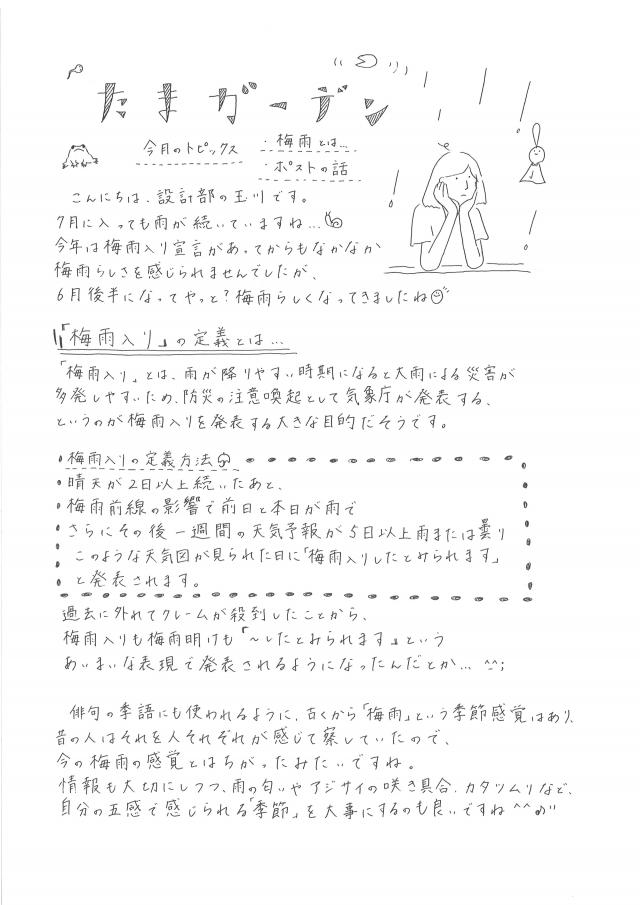 たまガーデン
今月のトピックス
・梅雨とは…
・ポストの話
こんにちは、設計部の玉川です。
7月に入っても雨が続いていますね…
今年は梅雨入り宣言があってからもなかなか
梅雨らしさを感じられませんでしたが、
6月後半になってやっと?梅雨らしくなってきましたね
「梅雨入り」の定義とは…
「梅雨入り」とは、雨が降りやすい時期になると大雨による災害が
多発しやすいため、防災の注意喚起として気象庁が発表する、
というのが梅雨入りを発表する大きな目的だそうです。
・梅雨入りの定義方法
・晴天が2日以上続いたあと、
・梅雨前線の影響で前日と本日が雨で
さらにその後一週間の天気予報が5日以上雨または曇り
このような天気図が見られた日に「梅雨入りしたとみられます」
と発表されます。
過去に外れてクレームが殺到したことから、
梅雨入りも梅雨明けも「~したとみられます」という
あいまいな表現で発表されるようになったんだとか… ^^;
俳句の季語にも使われるように、古くから「梅雨」という季節感覚はあり、
昔の人はそれを人それぞれが感じて察していたので、
今の梅雨の感覚とはちがったみたいですね。
情報も大切にしつつ、雨の匂いやアジサイの咲き具合、カタツムリなど、
自分の五感で感じられる「季節」を大事にするのも良いですね^^